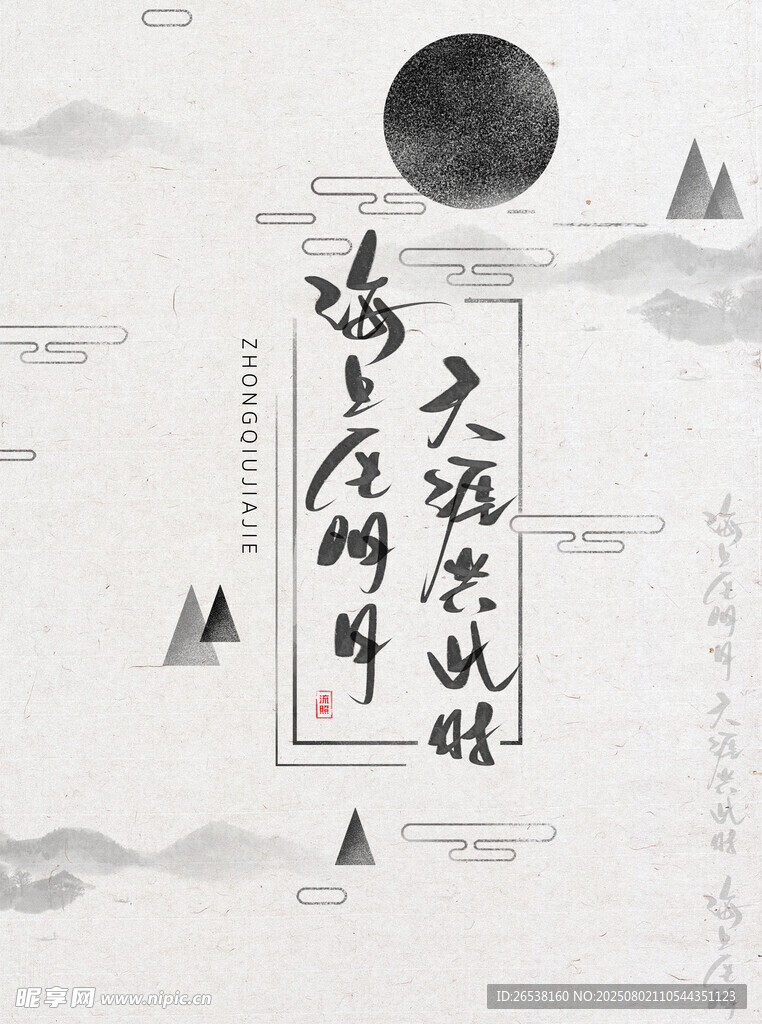 海上生明月
天涯共此时
ZHONGQIUJIAJIE
流照
海上生明月 天涯共此时 海上生
昵享网 www.nipic.cn
ID:26538160 NO:20250802110544351123